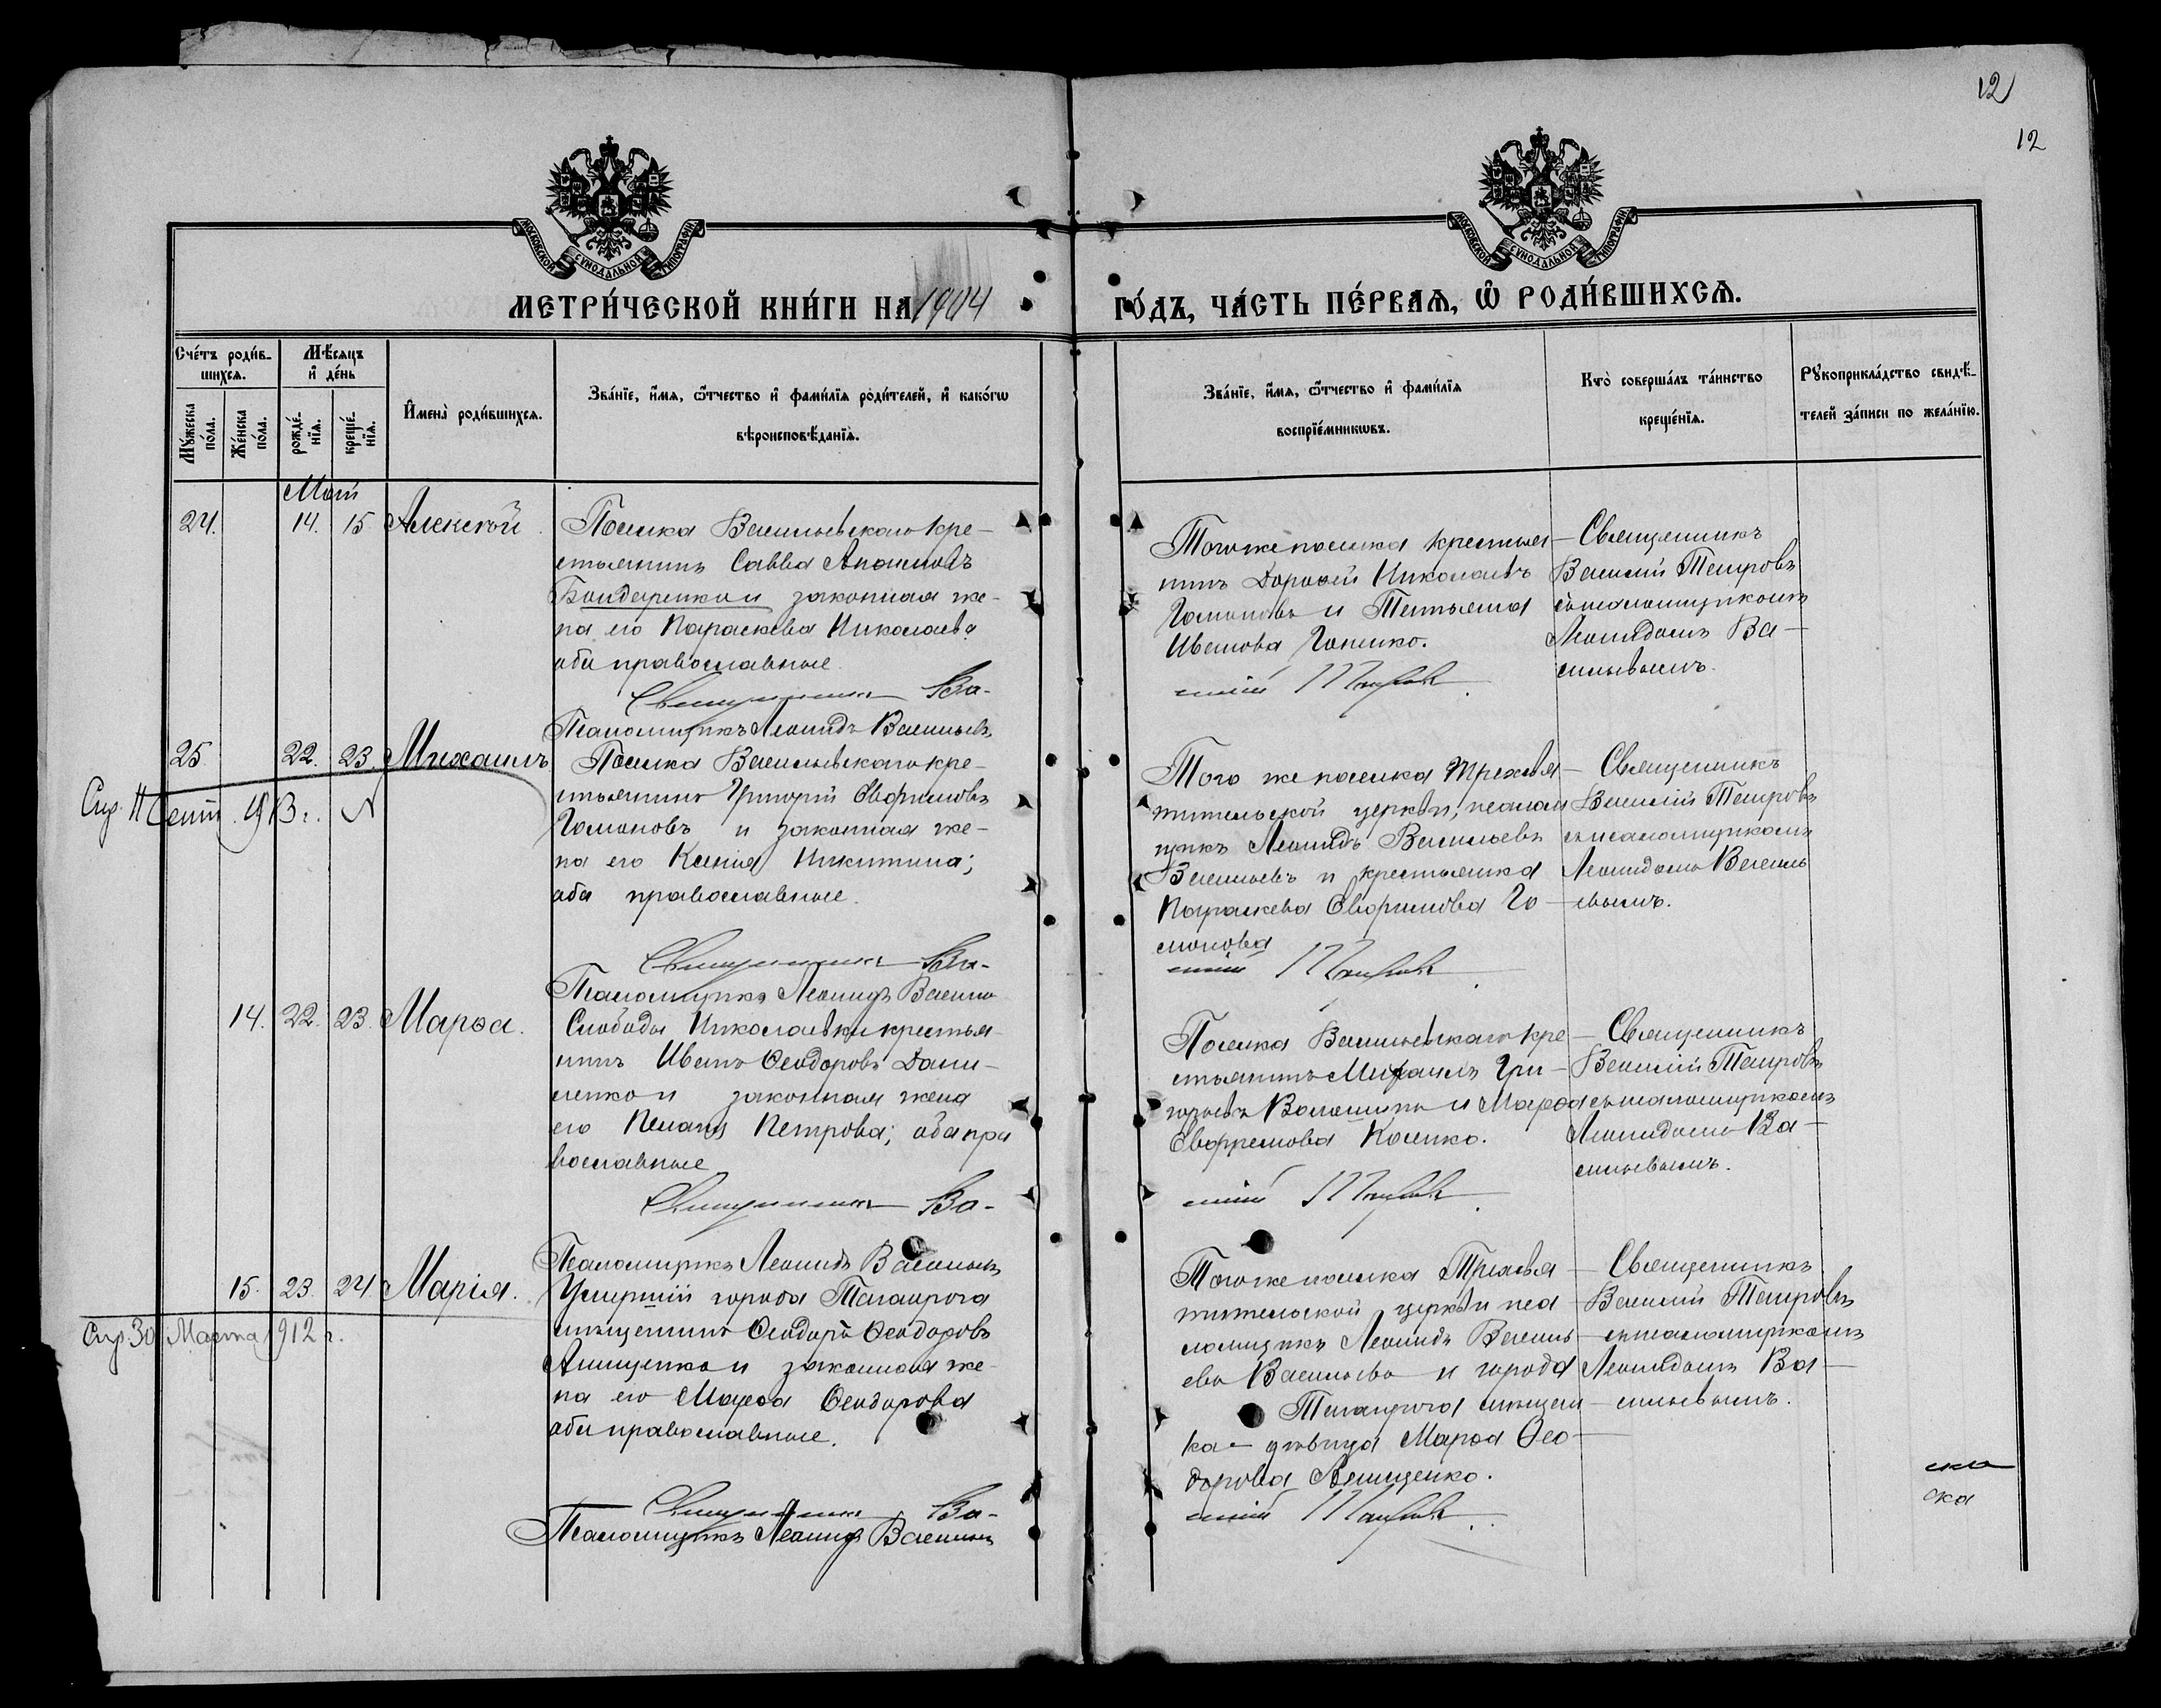 12
12
МОСКОВСКОЙ СѴНОДАЛЬНОЙ ТИПОГРАФІИ
МОСКОВСКОЙ СѴНОДАЛЬНОЙ ТИПОГРАФІИ
МЕТРИ́ЧЕСКОЙ КНИ́ГИ НА 1904
ГО́ДЪ, ЧА́СТЬ ПЕ́РВАѦ, Ѽ РОДИ́ВШИХСѦ.
Сче́тъ роди́в-
шихсѧ.
Мѣ́сѧцъ
и҆ де́нь
Мꙋ́жеска
по́ла.
Же́нска
по́ла.
рожде́-
нїѧ.
креще́-
нїѧ.
И҆мена̀ роди́вшихсѧ.
Зва́нїе, и҆́мѧ, ѻ҆́тчество и҆ фами́лїѧ роди́телей, и҆ како́гѡ
вѣроисповѣ́данїѧ.
Зва́нїе, и҆́мѧ, ѻ҆́тчество и҆ фами́лїѧ
воспрїе́мникѡвъ.
Кто̀ соверша́лъ та́инство
креще́нїѧ.
Рꙋкоприкла́дство свидѣ́-
телей за́писи по жела́нїю.
Май
24. 14. 15 Алексѣй
Поселка Васильевскаго кре-
стьянинъ Савва
Бондаренко и законная же-
на его Параскева Николаева
оба православные.
Священникъ Ва-
Псаломщикъ Леонидъ Васильевъ
Тогоже поселка крестья-
нинъ Дороѳей Николаевъ
Гомоновъ и Татьяна
Иванова
силій Петровъ
Священникъ
Василій Петровъ
съ псаломщикомъ
Леонидомъ Ва-
сильевымъ.
25 22. 23. Михаилъ
Поселка Васильевскаго кре-
стьянинъ Григорій Евфимовъ
Гомоновъ и законная же-
на его Ксенія Никитина;
оба православные.
Священникъ Ва-
Псаломщикъ Леонидъ Василь
Того же поселка Трехсвя-
тительской церкви, псалом
щикъ Леонидъ Васильевъ
Васильевъ и крестьянка
Параскева Евфимова Го-
монова
силій Петровъ
Священникъ
Василій Петровъ
съ псаломщикомъ
Леонидомъ Василь
евымъ.
Спр. 11 Сент. 1913 г.
14. 22. 23. Марѳа.
Слободы Николаевки крестья-
нинъ Иванъ Ѳеодоровъ Дани-
ленко и законная жена
его Пелагія Петрова; оба пра
вославные
Священникъ Ва-
Псаломщикъ Леонидъ Васильевъ
Поселка Васильевскаго кре-
стьянинъ Михаилъ Гри-
горьевъ Волошинъ и Марѳа
Евфремова
силій Петровъ
Священникъ
Василій Петровъ
съ псаломщикомъ
Леонидомъ Ва-
сильевымъ.
15. 23. 24. Марія.
Умершій города Таганрога
мѣщанинъ Ѳеодоръ Ѳеодоровъ
Анищенко и законная же-
на его Марѳа Ѳеодорова
оба православные.
Священникъ Ва-
Псаломщикъ Леонидъ Васильевъ
Тогоже поселка Трехсвя-
тительской церкви пса-
ломщикъ Леонидъ Василь-
евъ Васильевъ и города
Таганрога мѣщан-
ка- дѣвица Марѳа Ѳео-
дорова Анищенко.
силій Петровъ
Священникъ
Василій Петровъ
съ псаломщикомъ
Леонидомъ Ва-
сильевымъ.
Спр. 30 Марта 1912 г.
ска